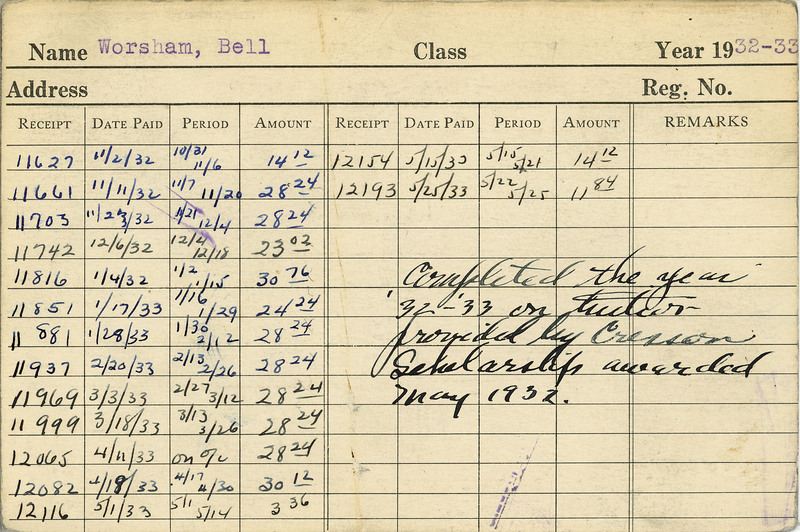 Name Worsham, Bell Class Year 1932-33
Address Reg. No.
RECEIPT DATE PAID PERIOD AMOUNT RECEIPT DATE PAID PERIOD AMOUNT REMARKS
11627 11/2/32 10/31 11/6 14 12 12154 5/15/33 5/15 5/21 14 12
11661 11/11/32 11/7 11/20 28 24 12193 5/25/33 5/22 5/25 11 84
11703 11/23/32 11/21 12/4 28 24
11742 12/6/32 12/4 12/18 23 02
11816 1/4/32 1/2 1/15 30 76
11851 1/17/33 1/16 1/29 24 24
11881 1/28/33 1/30 2/12 28 24
11937 2/20/33 2/13 2/26 28 24
11969 3/3/33 2/27 3/12 28 24
11999 3/18/33 3/13 3/26 28 24
12065 4/11/33 on a/c 28 24
12082 4/18/33 4/17 4/30 30 12
12116 5/1/33 5/1 5/14 3 36
Completed the year
'32-'33 on tuition
provided by Cresson
Scholarship awarded
May 1932.